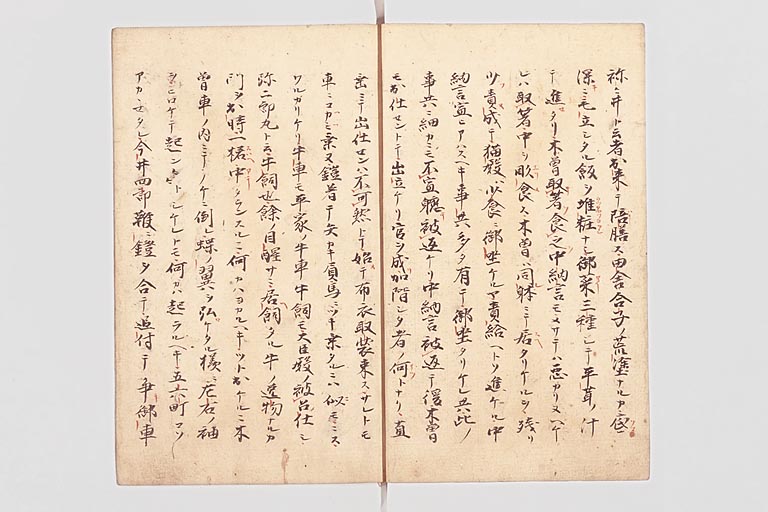 祢ノ井ト云者出来テ陪膳ス田舎合子ノ荒塗ナルカ底
深ニ毛立シタル飯ヲ堆粧ナシ御菜三種シテ平茸ノ汁
テ進タリ木曽取著食之中納言モメサテハ悪カリヌヘケ
レハ取著中シ食ス木曽ハ同躰ニテ居タリケルヲ残リ
少責成テ猫殿少食ニ御坐ケルア責給ヘトソ進ケル中
納言宣ヒアハスヘキ事共多ク有テ御坐タリケレ共此ノ
事共ニ細カニモ不宣軈被返ケリ中納言被返テ後木曽
モ出仕セントテ出立ケリ官ヲ成加階シタ者ノ何トナリ直
垂ニテ出仕センハ不可然トテ始テ布衣取装束スサレトモ
車ニコカミ乗ヌ鎧着テ矢カキ負馬ニツキ乗タルニハ似モニス
ワルカリケリ牛車モ平家ノ牛車牛飼モ大臣殿ノ被召仕シ
弥二郎丸ト云牛飼也餘ノ目醒サニ居飼タル牛ノ逸物ナルカ
門ヲ出時一楉中ランスルニ何カハヨカルヘキツト出ケルニ木
曽車ノ内ニテノケニ倒レ蝶ノ翼ヲ弘ケタル様ニ左右ノ袖
ヲヒロケテ起ントシケレトモ何カハ起ラルヘキ五六町コソ
アカヽセタレ今井四郎鞭ニ鎧ヲ合テ追付テ争御車